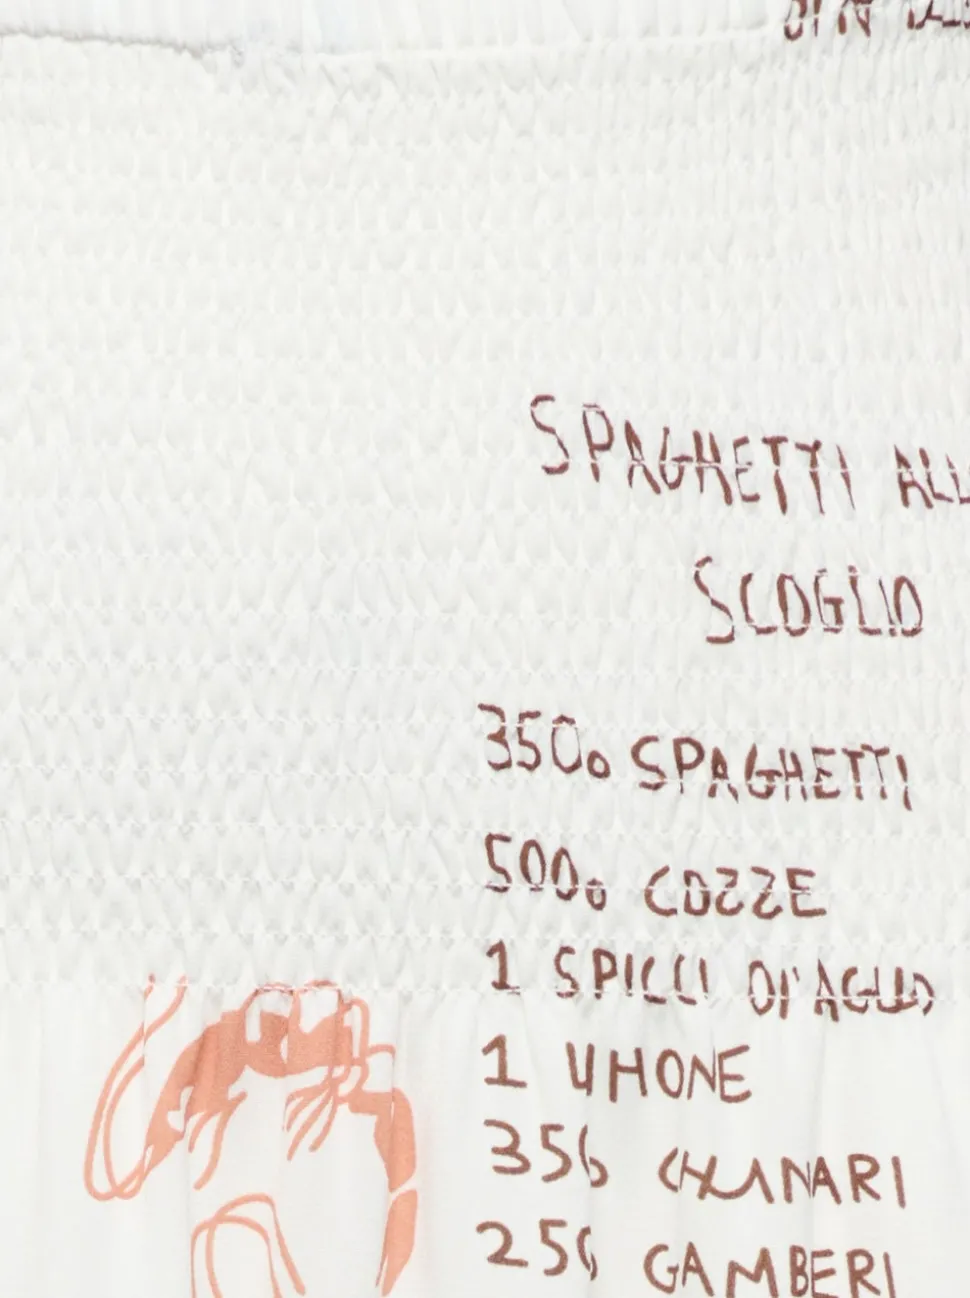 SPAGHETTI ALL
SCOGLIO
350g SPAGHETTI
500g COZZE
1 SPICCI DI'AGLIO
1 LIMONE
350 CALAMARI
250 GAMBERI